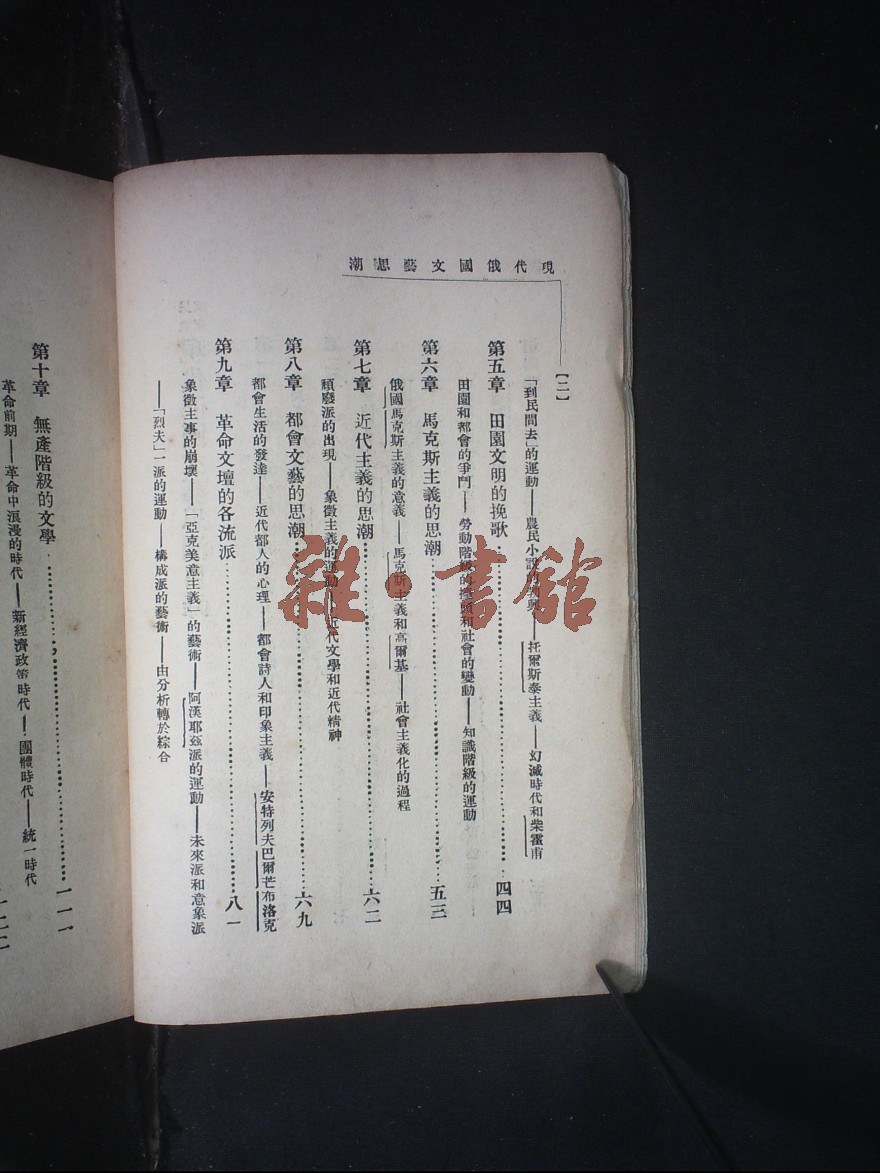 現代俄國文藝思潮
【二】
「到民間去」的運動——農民小說的勃興——托爾斯泰主義——幻滅時代和柴霍甫
第五章　田園文明的挽歌……四四
田園和都會的爭鬥——勞動階級的擡頭和社會的變動——知識階級的運動
第六章　馬克斯主義的思潮……五三
俄國馬克斯主義的意義——馬克斯主義和高爾基——社會主義化的過程
第七章　近代主義的思潮……六二
頹廢派的出現——象徵主義的運動——近代文學和近代精神
第八章　都會文藝的思潮……六九
都會生活的發達——近代都人的心理——都會詩人和印象主義——安特列夫巴爾芒布洛克
第九章　革命文壇的各流派……八一
象徵主事的崩壞——「亞克美意主義」的藝術——阿漢耶茲派的運動——未來派和意象派
——「烈夫」一派的運動——構成派的藝術——由分析轉於綜合
第十章　無產階級的文學……一一一
革命前期——革命中浪漫的時代——新經濟政策時代——團體時代——統一時代
雜·書館